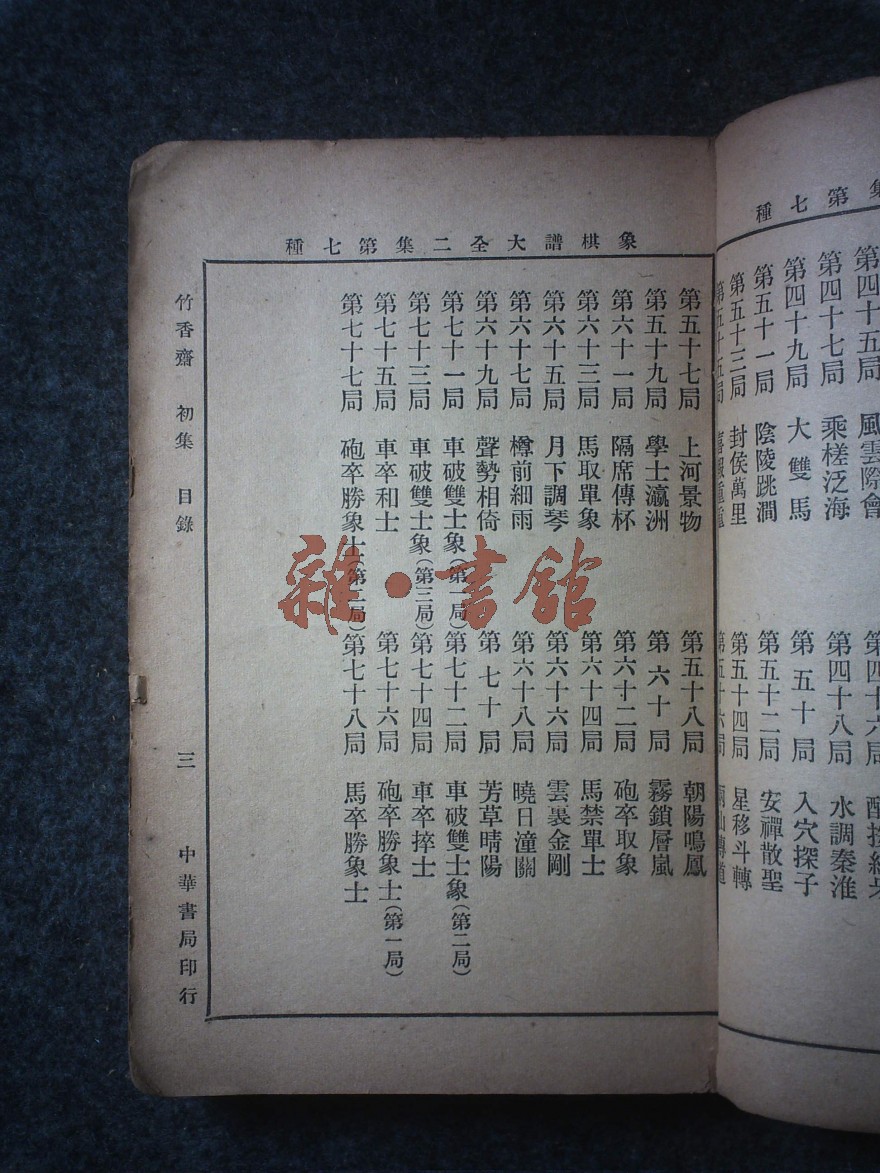 集第七種
第四十五局 風雲際會
第四十六局
第四十七局 乘槎泛海
第四十八局 水調秦淮
第四十九局 大雙馬
第五十局 入穴探子
第五十一局 陰陵跳澗
第五十二局 安禪散聖
第五十三局 封侯萬里
第五十四局 星移斗轉
第五十五局
第五十六局
象棋譜大全二集第七種
第五十七局 上河景物
第五十八局 朝陽鳴鳳
第五十九局 學士瀛洲
第六十局 霧鎖層嵐
第六十一局 隔席傳杯
第六十二局 砲卒取象
第六十三局 馬取單象
第六十四局 馬禁單士
第六十五局 月下調琴
第六十六局 雲裏金剛
第六十七局 樽前細雨
第六十八局 曉日潼關
第六十九局 聲勢相倚
第七十局 芳草晴陽
第七十一局 車破雙士象(第一局)
第七十二局 車破雙士象(第二局)
第七十三局 車破雙士象(第三局)
第七十四局 車卒捽士
第七十五局 車卒和士
第七十六局 砲卒勝象士(第一局)
第七十七局 砲卒勝象士(第二局)
第七十八局 馬卒勝象士
竹香齋 初集 目錄 三 中華書局印行
雜·書館